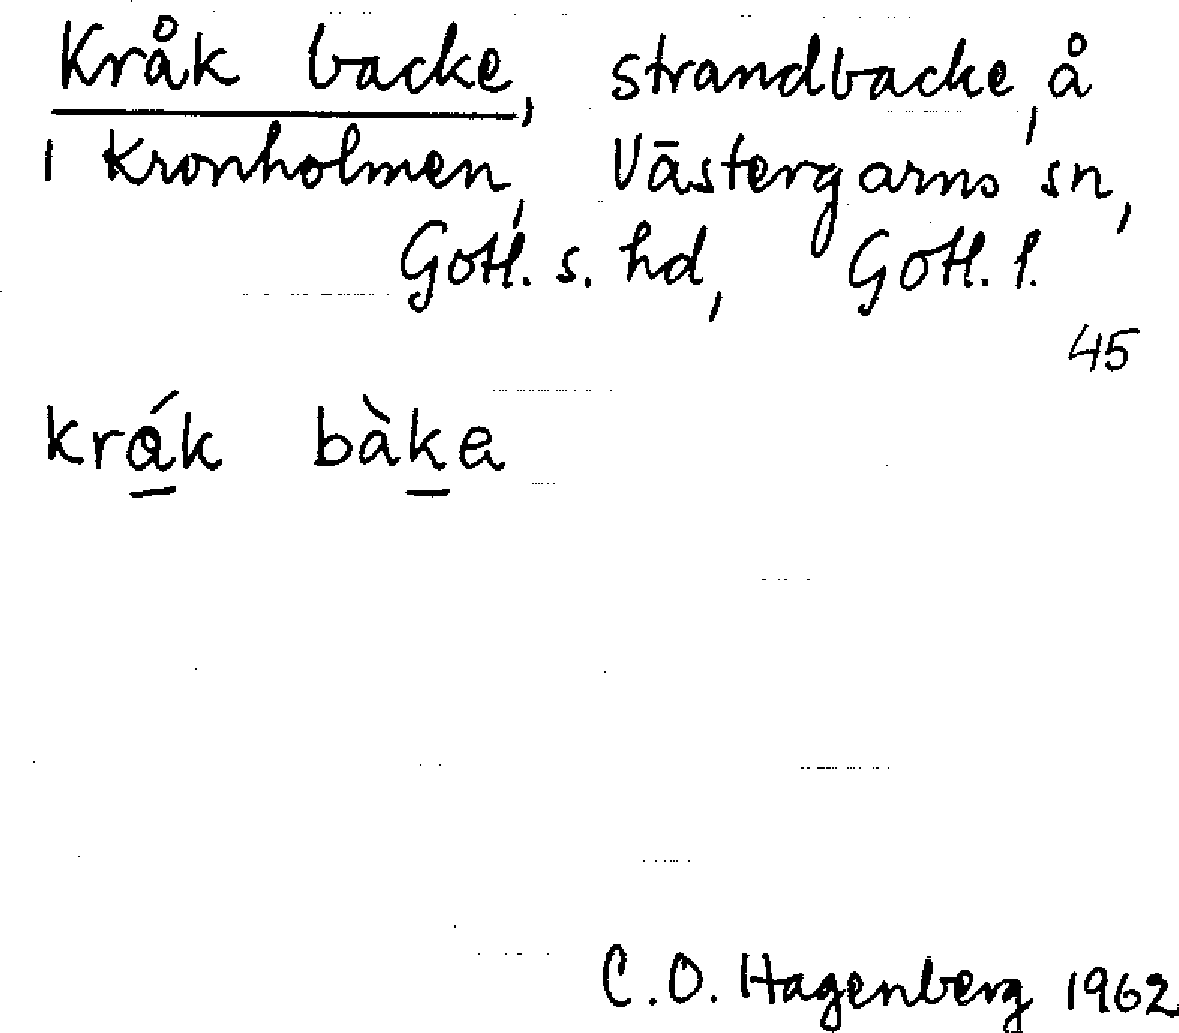 Kråk backe, strandbacke, å
1 Kronholmen, Västergarns sn,
Gotl. s. hd, Gotl. l.
45
krák bàke
C. O. Hagenberg 1962